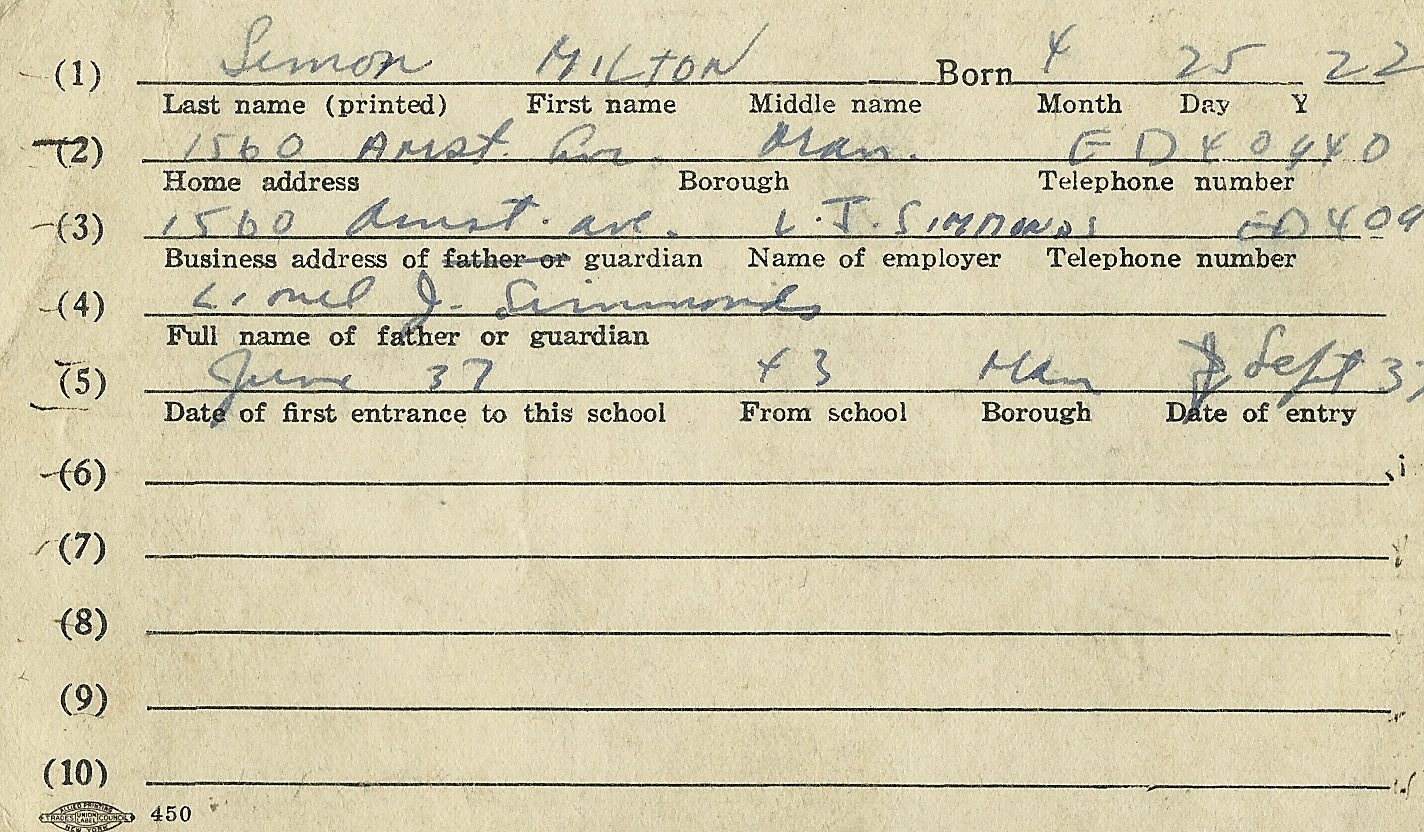 (1) Semon MILTON Born 4 25 22
Last name (printed) First name Middle name Month Day Y
(2) 1560 Amst. Ave. Man. ED 4 0440
Home address Borough Telephone number
(3) 1560 Amst. ave. L. J. SIMMONDS ED 4 09
Business address of father or guardian Name of employer Telephone number
(4) Lionel J. Simmonds
Full name of father or guardian
(5) June 37 43 Man Sept 37
Date of first entrance to this school From school Borough Date of entry
(6)
(7)
(8)
(9)
(10)
ALLIED PRINTING
TRADES UNION LABEL COUNCIL 450
NEW YORK